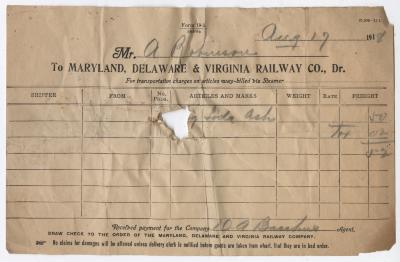 Form 19-S
Aug 17 191
Mr. A Robinson
To MARYLAND, DELAWARE & VIRGINIA RAILWAY CO., Dr.
For transportation charges on articles way-billed Via Steamer
SHIPPER FROM No. Pkgs. ARTICLES AND MARKS WEIGHT RATE FREIGHT
Soda Ash 50
Tax 02
52
Received payment for the Company Agent.
DRAW CHECK TO THE ORDER OF THE MARYLAND, DELAWARE AND VIRGINIA RAILWAY COMPANY.
No claims for damages will be allowed unless delivery clerk is notified before goods are taken from wharf, that they are in bad order.